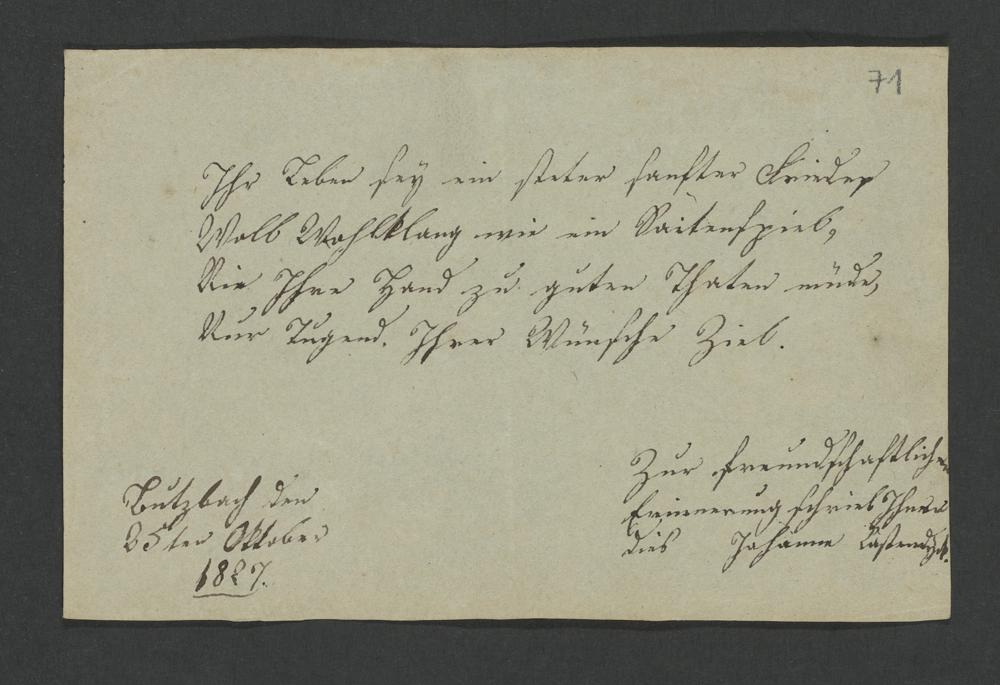 71
Ihr Leben sey ein steter sanfter Frieden
Voll Wohlklang wie ein Saitenspiel,
Nie Ihre Hand zu guten Thaten müde,
Nur Tugend. Ihrer Wünsche Ziel.
Zur freundschaftlichen
Erinnerung schrieb Ihnen
dies Johanne
Butzbach den
25ten Oktober
1827.